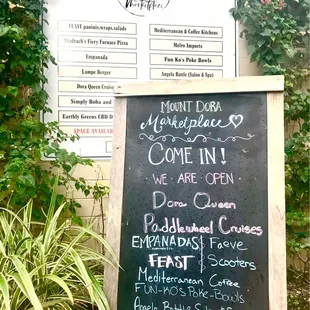 Marketplace
FEAST paninis.wraps.salads
Mediterranean & Coffee Kitchen
Shadrach's Fiery Furnace Pizza
Metro Imports
Empanada
Fun Ko's Poke Bowls
Lampe Berger
Angela Battle (Salon & Spa)
Dora Queen Cruise
Simply Boba and
Earthly Greens CBD D
SPACE AVAILABLE
MOUNT DORA
Marketplace
COME IN!
WE ARE OPEN
Dora Queen
Paddlewheel Cruises
EMPANADAS Faeve
FEAST Scooters
Mediterranean Coffee
FUN-KO's Poke-Bowls
Angela Battle Salon